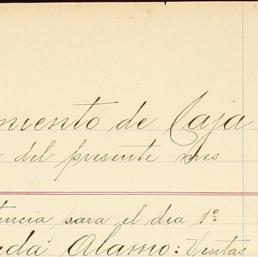 miento de Caja
del presente mes
tencia para el dia 1º
da Alamo: Ventas